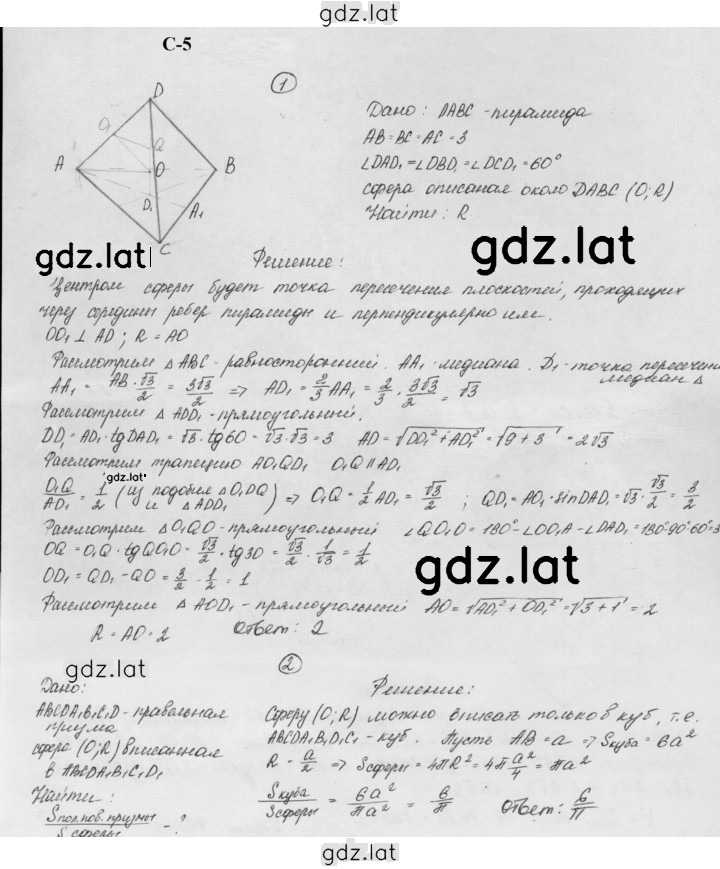 gdz.lat
С-5
1
D
Q
A
O
B
D₁
A₁
C
Дано: DABC - пирамида
AB=BC=AC=3
∠DAD₁=∠DBD₁=∠DCD₁=60°
сфера описаная около DABC (O;R)
Найти: R
gdz.lat
gdz.lat
Решение:
Центром сферы будет точка пересечения плоскостей, проходящих
через середины ребер пирамиды и перпендикулярно им.
OO₁ ⊥ AD ; R = AO
Рассмотрим △ABC - равносторонний. AA₁ - медиана. D₁ - точка пересечен
медиан △
AA₁ = AB·√3/2 = 3√3/2 => AD₁ = 2/3 AA₁ = 2/3 · 3√3/2 = √3
Рассмотрим △ADD₁ - прямоугольный.
DD₁ = AD₁ · tgDAD₁ = √3 · tg60 = √3·√3 = 3 AD = √(DD₁² + AD₁²) = √(9+3) = 2√3
Рассмотрим трапецию AO₁QD₁ O₁Q ∥ AD₁
gdz.lat
O₁Q/AD₁ = 1/2 (из подобия △O₁DQ и △ADD₁) => O₁Q = 1/2 AD₁ = √3/2 ; QD₁ = AO₁ · sinDAD₁ = √3 · √3/2 = 3/2
Рассмотрим △O₁QO - прямоугольный ∠QO₁O = 180° - ∠OO₁A - ∠DAD₁ = 180°-90°-60°=3
OQ = O₁Q · tgQO₁O = √3/2 · tg30 = √3/2 · 1/√3 = 1/2
OD₁ = QD₁ - QO = 3/2 - 1/2 = 1
gdz.lat
Рассмотрим △AOD₁ - прямоугольный AO = √(AD₁² + OD₁²) = √(3+1) = 2
R = AO = 2 Ответ: 2
gdz.lat
2
Дано:
ABCDA₁B₁C₁D - правильная
призма
сфера (O;R) вписанная
в ABCDA₁B₁C₁D₁
Найти:
Sпол.пов.призмы/Sсферы - ?
Решение:
Сферу (O;R) можно вписать только в куб, т.е.
ABCDA₁B₁D₁C₁ - куб. Пусть AB = a => Sкуба = 6a²
R = a/2 => Sсферы = 4πR² = 4π a²/4 = πa²
Sкуба/Sсферы = 6a²/πa² = 6/π Ответ: 6/π
gdz.lat